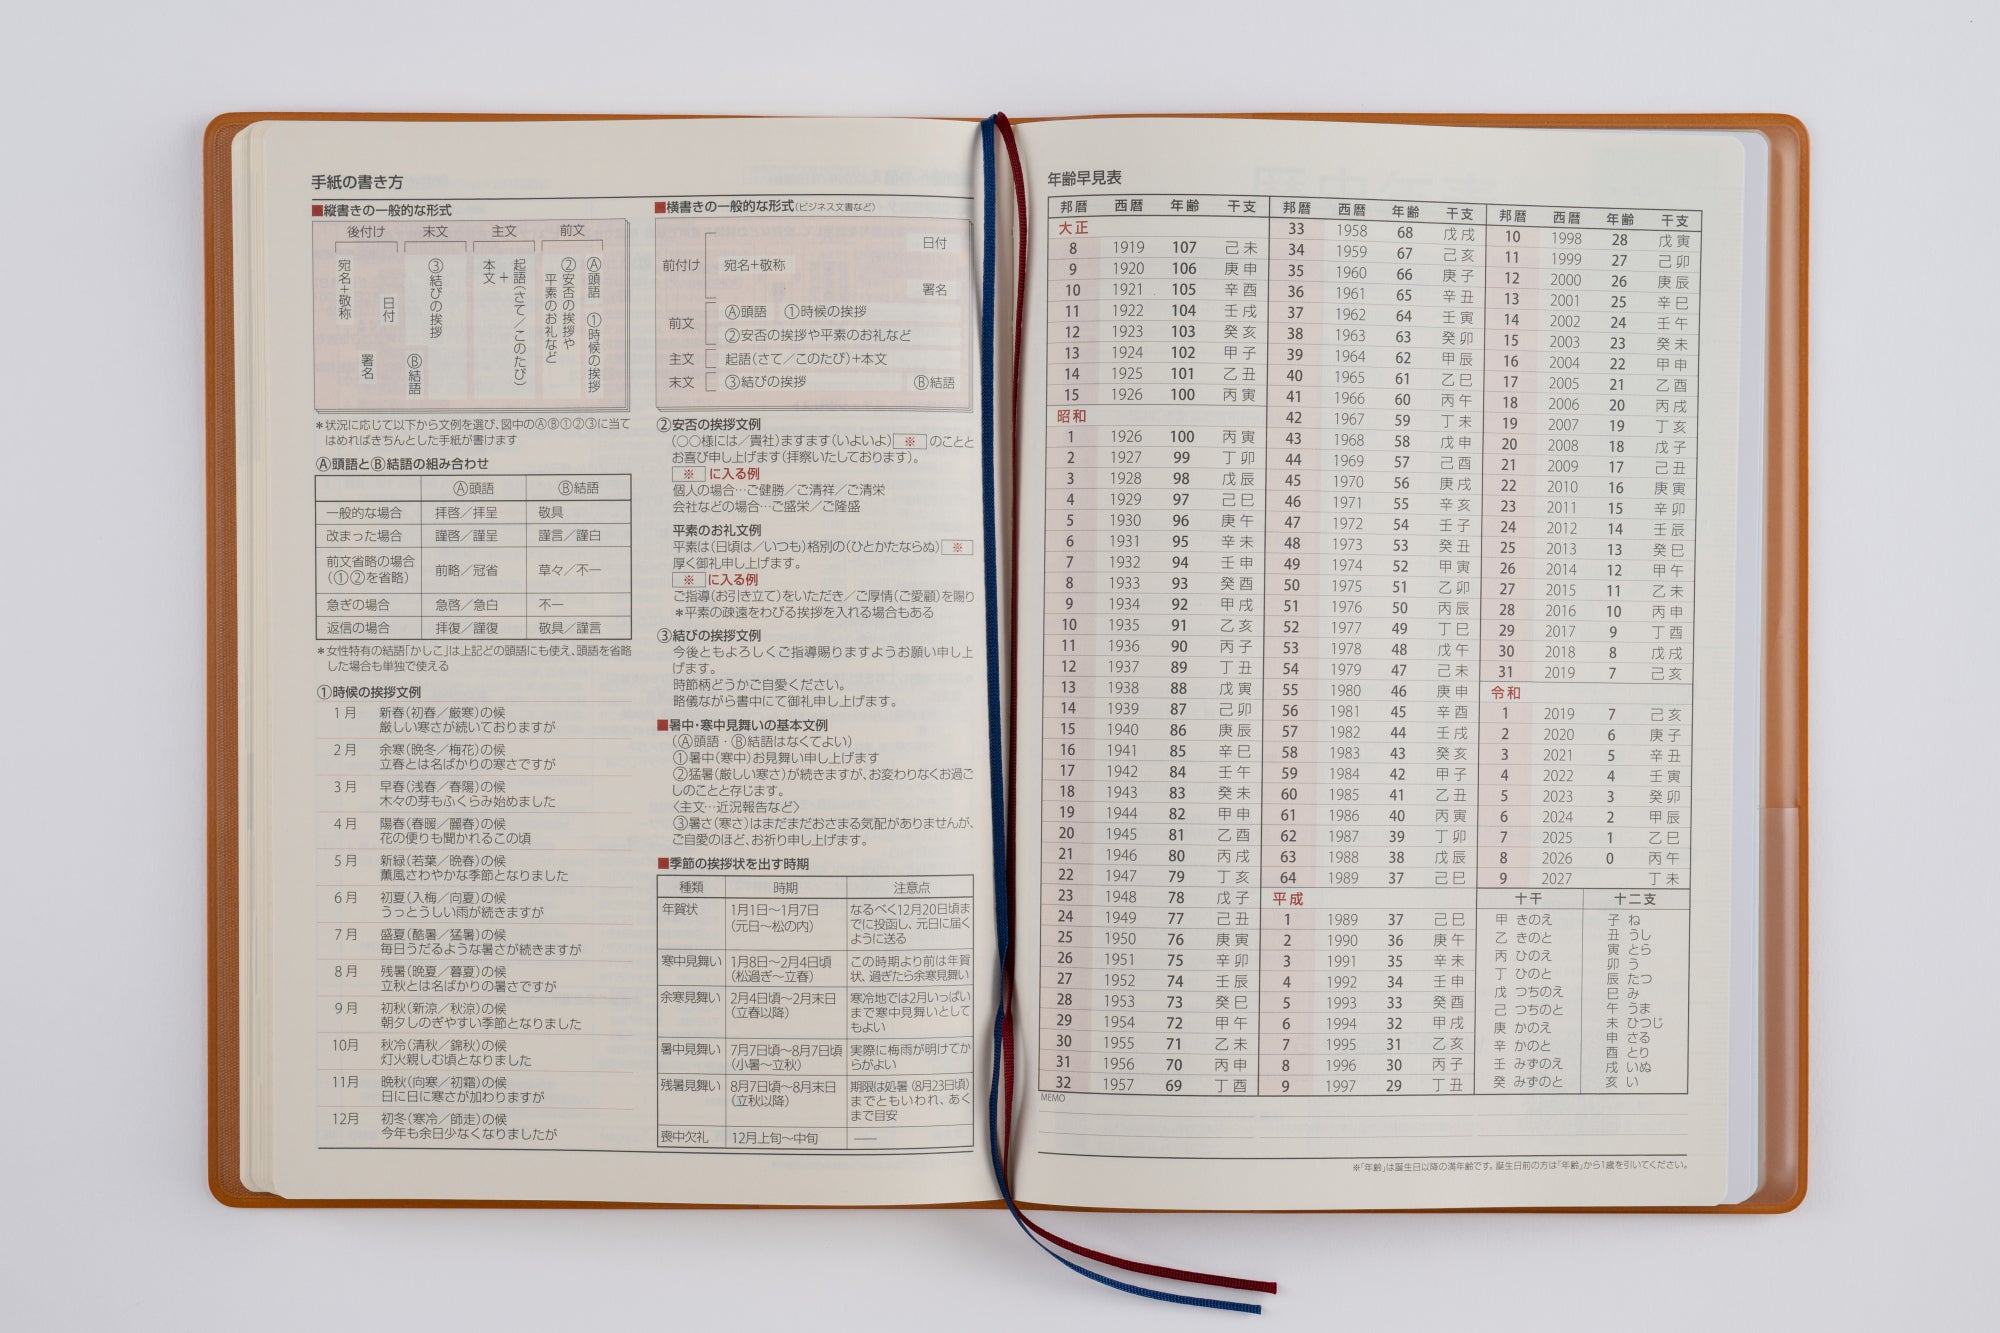 手紙の書き方
■縦書きの一般的な形式
後付け 末文 主文 前文
Ⓐ頭語 ①時候の挨拶
②安否の挨拶や
平素のお礼など
起語(さて／このたび)
+
本文
③結びの挨拶
Ⓑ結語
日付
署名
宛名+敬称
＊状況に応じて以下から文例を選び、図中のⒶⒷ①②③に当て
はめればきちんとした手紙が書けます
Ⓐ頭語とⒷ結語の組み合わせ
Ⓐ頭語 Ⓑ結語
一般的な場合 拝啓／拝呈 敬具
改まった場合 謹啓／謹呈 謹言／謹白
前文省略の場合
(①②を省略) 前略／冠省 草々／不一
急ぎの場合 急啓／急白 不一
返信の場合 拝復／謹復 敬具／謹言
＊女性特有の結語「かしこ」は上記どの頭語にも使え、頭語を省略
した場合も単独で使える
①時候の挨拶文例
1月 新春(初春／厳寒)の候
厳しい寒さが続いておりますが
2月 余寒(晩冬／梅花)の候
立春とは名ばかりの寒さですが
3月 早春(浅春／春陽)の候
木々の芽もふくらみ始めました
4月 陽春(春暖／麗春)の候
花の便りも聞かれるこの頃
5月 新緑(若葉／晩春)の候
薫風さわやかな季節となりました
6月 初夏(入梅／向夏)の候
うっとうしい雨が続きますが
7月 盛夏(酷暑／猛暑)の候
毎日うだるような暑さが続きますが
8月 残暑(晩夏／暮夏)の候
立秋とは名ばかりの暑さですが
9月 初秋(新涼／秋涼)の候
朝夕しのぎやすい季節となりました
10月 秋冷(清秋／錦秋)の候
灯火親しむ頃となりました
11月 晩秋(向寒／初霜)の候
日に日に寒さが加わりますが
12月 初冬(寒冷／師走)の候
今年も余日少なくなりましたが
■横書きの一般的な形式(ビジネス文書など)
日付
前付け 宛名+敬称
署名
前文 Ⓐ頭語 ①時候の挨拶
②安否の挨拶や平素のお礼など
主文 起語(さて／このたび)+本文
末文 ③結びの挨拶 Ⓑ結語
②安否の挨拶文例
(○○様には／貴社)ますます(いよいよ) ※ のことと
お喜び申し上げます(拝察いたしております)。
※ に入る例
個人の場合…ご健勝／ご清祥／ご清栄
会社などの場合…ご盛栄／ご隆盛
平素のお礼文例
平素は(日頃は／いつも)格別の(ひとかたならぬ) ※
厚く御礼申し上げます。
※ に入る例
ご指導(お引き立て)をいただき／ご厚情(ご愛顧)を賜り
＊平素の疎遠をわびる挨拶を入れる場合もある
③結びの挨拶文例
今後ともよろしくご指導賜りますようお願い申し上
げます。
時節柄どうかご自愛ください。
略儀ながら書中にて御礼申し上げます。
■暑中・寒中見舞いの基本文例
(Ⓐ頭語・Ⓑ結語はなくてよい)
①暑中(寒中)お見舞い申し上げます
②猛暑(厳しい寒さ)が続きますが、お変わりなくお過ご
しのことと存じます。
〈主文…近況報告など〉
③暑さ(寒さ)はまだまだおさまる気配がありませんが、
ご自愛のほど、お祈り申し上げます。
■季節の挨拶状を出す時期
種類 時期 注意点
年賀状 1月1日～1月7日
(元日～松の内) なるべく12月20日頃ま
でに投函し、元日に届く
ように送る
寒中見舞い 1月8日～2月4日頃
(松過ぎ～立春) この時期より前は年賀
状、過ぎたら余寒見舞い
余寒見舞い 2月4日頃～2月末日
(立春以降) 寒冷地では2月いっぱい
まで寒中見舞いとして
もよい
暑中見舞い 7月7日頃～8月7日頃
(小暑～立秋) 実際に梅雨が明けてか
らがよい
残暑見舞い 8月7日頃～8月末日
(立秋以降) 期限は処暑(8月23日頃)
までともいわれ、あく
まで目安
喪中欠礼 12月上旬～中旬 ――
年齢早見表
邦暦 西暦 年齢 干支
大正
8 1919 107 己未
9 1920 106 庚申
10 1921 105 辛酉
11 1922 104 壬戌
12 1923 103 癸亥
13 1924 102 甲子
14 1925 101 乙丑
15 1926 100 丙寅
昭和
1 1926 100 丙寅
2 1927 99 丁卯
3 1928 98 戊辰
4 1929 97 己巳
5 1930 96 庚午
6 1931 95 辛未
7 1932 94 壬申
8 1933 93 癸酉
9 1934 92 甲戌
10 1935 91 乙亥
11 1936 90 丙子
12 1937 89 丁丑
13 1938 88 戊寅
14 1939 87 己卯
15 1940 86 庚辰
16 1941 85 辛巳
17 1942 84 壬午
18 1943 83 癸未
19 1944 82 甲申
20 1945 81 乙酉
21 1946 80 丙戌
22 1947 79 丁亥
23 1948 78 戊子
24 1949 77 己丑
25 1950 76 庚寅
26 1951 75 辛卯
27 1952 74 壬辰
28 1953 73 癸巳
29 1954 72 甲午
30 1955 71 乙未
31 1956 70 丙申
32 1957 69 丁酉
邦暦 西暦 年齢 干支
33 1958 68 戊戌
34 1959 67 己亥
35 1960 66 庚子
36 1961 65 辛丑
37 1962 64 壬寅
38 1963 63 癸卯
39 1964 62 甲辰
40 1965 61 乙巳
41 1966 60 丙午
42 1967 59 丁未
43 1968 58 戊申
44 1969 57 己酉
45 1970 56 庚戌
46 1971 55 辛亥
47 1972 54 壬子
48 1973 53 癸丑
49 1974 52 甲寅
50 1975 51 乙卯
51 1976 50 丙辰
52 1977 49 丁巳
53 1978 48 戊午
54 1979 47 己未
55 1980 46 庚申
56 1981 45 辛酉
57 1982 44 壬戌
58 1983 43 癸亥
59 1984 42 甲子
60 1985 41 乙丑
61 1986 40 丙寅
62 1987 39 丁卯
63 1988 38 戊辰
64 1989 37 己巳
平成
1 1989 37 己巳
2 1990 36 庚午
3 1991 35 辛未
4 1992 34 壬申
5 1993 33 癸酉
6 1994 32 甲戌
7 1995 31 乙亥
8 1996 30 丙子
9 1997 29 丁丑
邦暦 西暦 年齢 干支
10 1998 28 戊寅
11 1999 27 己卯
12 2000 26 庚辰
13 2001 25 辛巳
14 2002 24 壬午
15 2003 23 癸未
16 2004 22 甲申
17 2005 21 乙酉
18 2006 20 丙戌
19 2007 19 丁亥
20 2008 18 戊子
21 2009 17 己丑
22 2010 16 庚寅
23 2011 15 辛卯
24 2012 14 壬辰
25 2013 13 癸巳
26 2014 12 甲午
27 2015 11 乙未
28 2016 10 丙申
29 2017 9 丁酉
30 2018 8 戊戌
31 2019 7 己亥
令和
1 2019 7 己亥
2 2020 6 庚子
3 2021 5 辛丑
4 2022 4 壬寅
5 2023 3 癸卯
6 2024 2 甲辰
7 2025 1 乙巳
8 2026 0 丙午
9 2027 丁未
十干
甲 きのえ
乙 きのと
丙 ひのえ
丁 ひのと
戊 つちのえ
己 つちのと
庚 かのえ
辛 かのと
壬 みずのえ
癸 みずのと
十二支
子 ね
丑 うし
寅 とら
卯 う
辰 たつ
巳 み
午 うま
未 ひつじ
申 さる
酉 とり
戌 いぬ
亥 い
MEMO
※「年齢」は誕生日以降の満年齢です。誕生日前の方は「年齢」から1歳を引いてください。